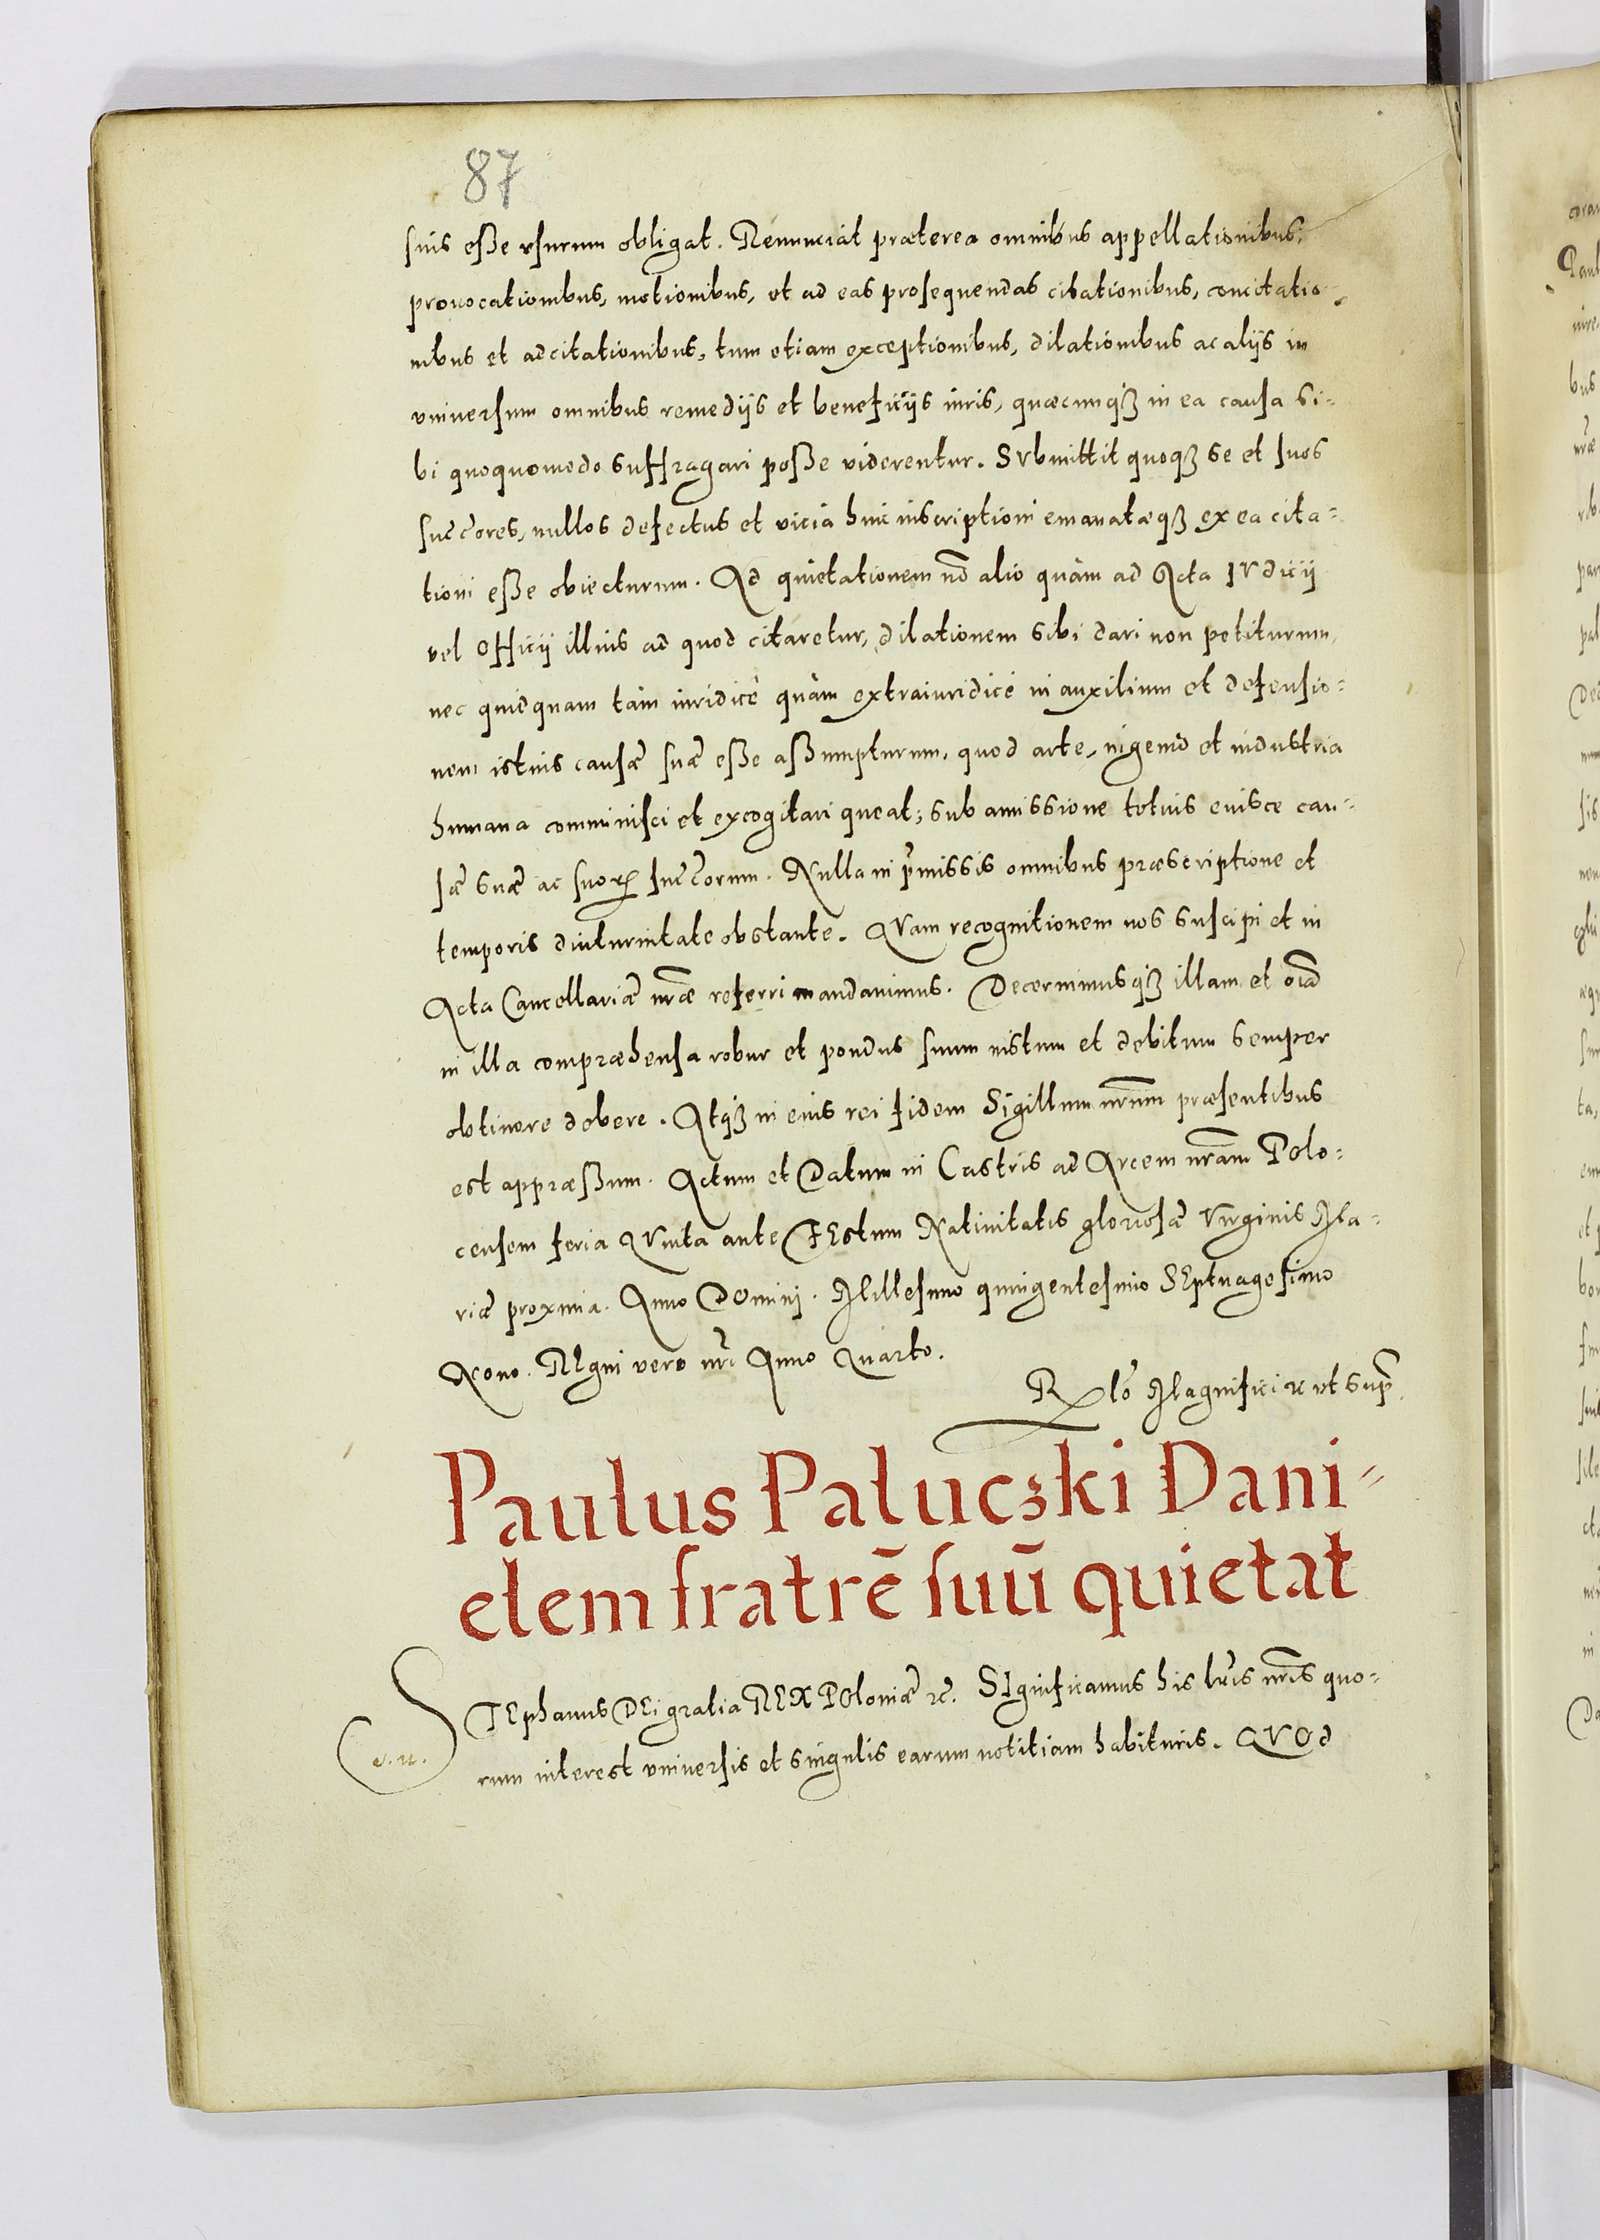 87
suis esse vsurum obligat. Renunciat præterea omnibus appellationibus,
prouocationibus, motionibus, et ad eas prosequendas citationibus, concitatio-
nibus et adcitationibus, tum etiam exceptionibus, dilationibus ac alijs in
vniuersum omnibus remedijs et beneficijs iuris, quæcunqꝫ in ea causa si-
bi quoquomodo suffragari posse viderentur. SVbmittit quoqꝫ se et suos
succ̃ores, nullos defectus et vicia huic inscriptioni emanatæqꝫ ex ea cita-
tioni esse obiecturum. Ad quietationem nõ alio quàm ad Acta IVdicij
vel Officij illius ad quod citaretur, dilationem sibi dari non petiturum,
nec quidquam tàm iuridicè quàm extraiuridicè in auxilium et defensio-
nem istius causæ suæ esse assumpturum, quod arte, ingenio et industria
humana comminisci et excogitari queat; sub amissione totius eiusce cau-
sæ suæ ac suoꝝ succ̃orum. Nulla in p̃missis omnibus præscriptione et
temporis diuturnitate obstante. QVam recognitionem nos suscipi et in
Acta Cancellariæ nr̃æ referri mandauimus. Decernimusqꝫ illam et oĩa
in illa compræhensa robur et pondus suum iustum et debitum semper
obtinere debere. Atqꝫ in eius rei fidem Sigillum nr̃um præsentibus
est appræssum. Actum et Datum in Castris ad Arcem nr̃am Polo-
censem feria QVinta ante FEstum Natiuitatis gloriosæ Virginis Ma-
riæ proxima. Anno DOmini. Millesimo quingentesimo SEptuagesimo
Nono. REgni vero nr̃i Anno Quarto.
Rlõ Magnifici ꝛc vt sup̃
Paulus Paluczki Dani-
elem fratrẽ suũ quietat
STEphanus DEi gratia REX POloniæ ꝛc̃. SIgnificamus his lr̃is nr̃is quo-
rum interest vniuersis et singulis earum notitiam habituris. QVOd